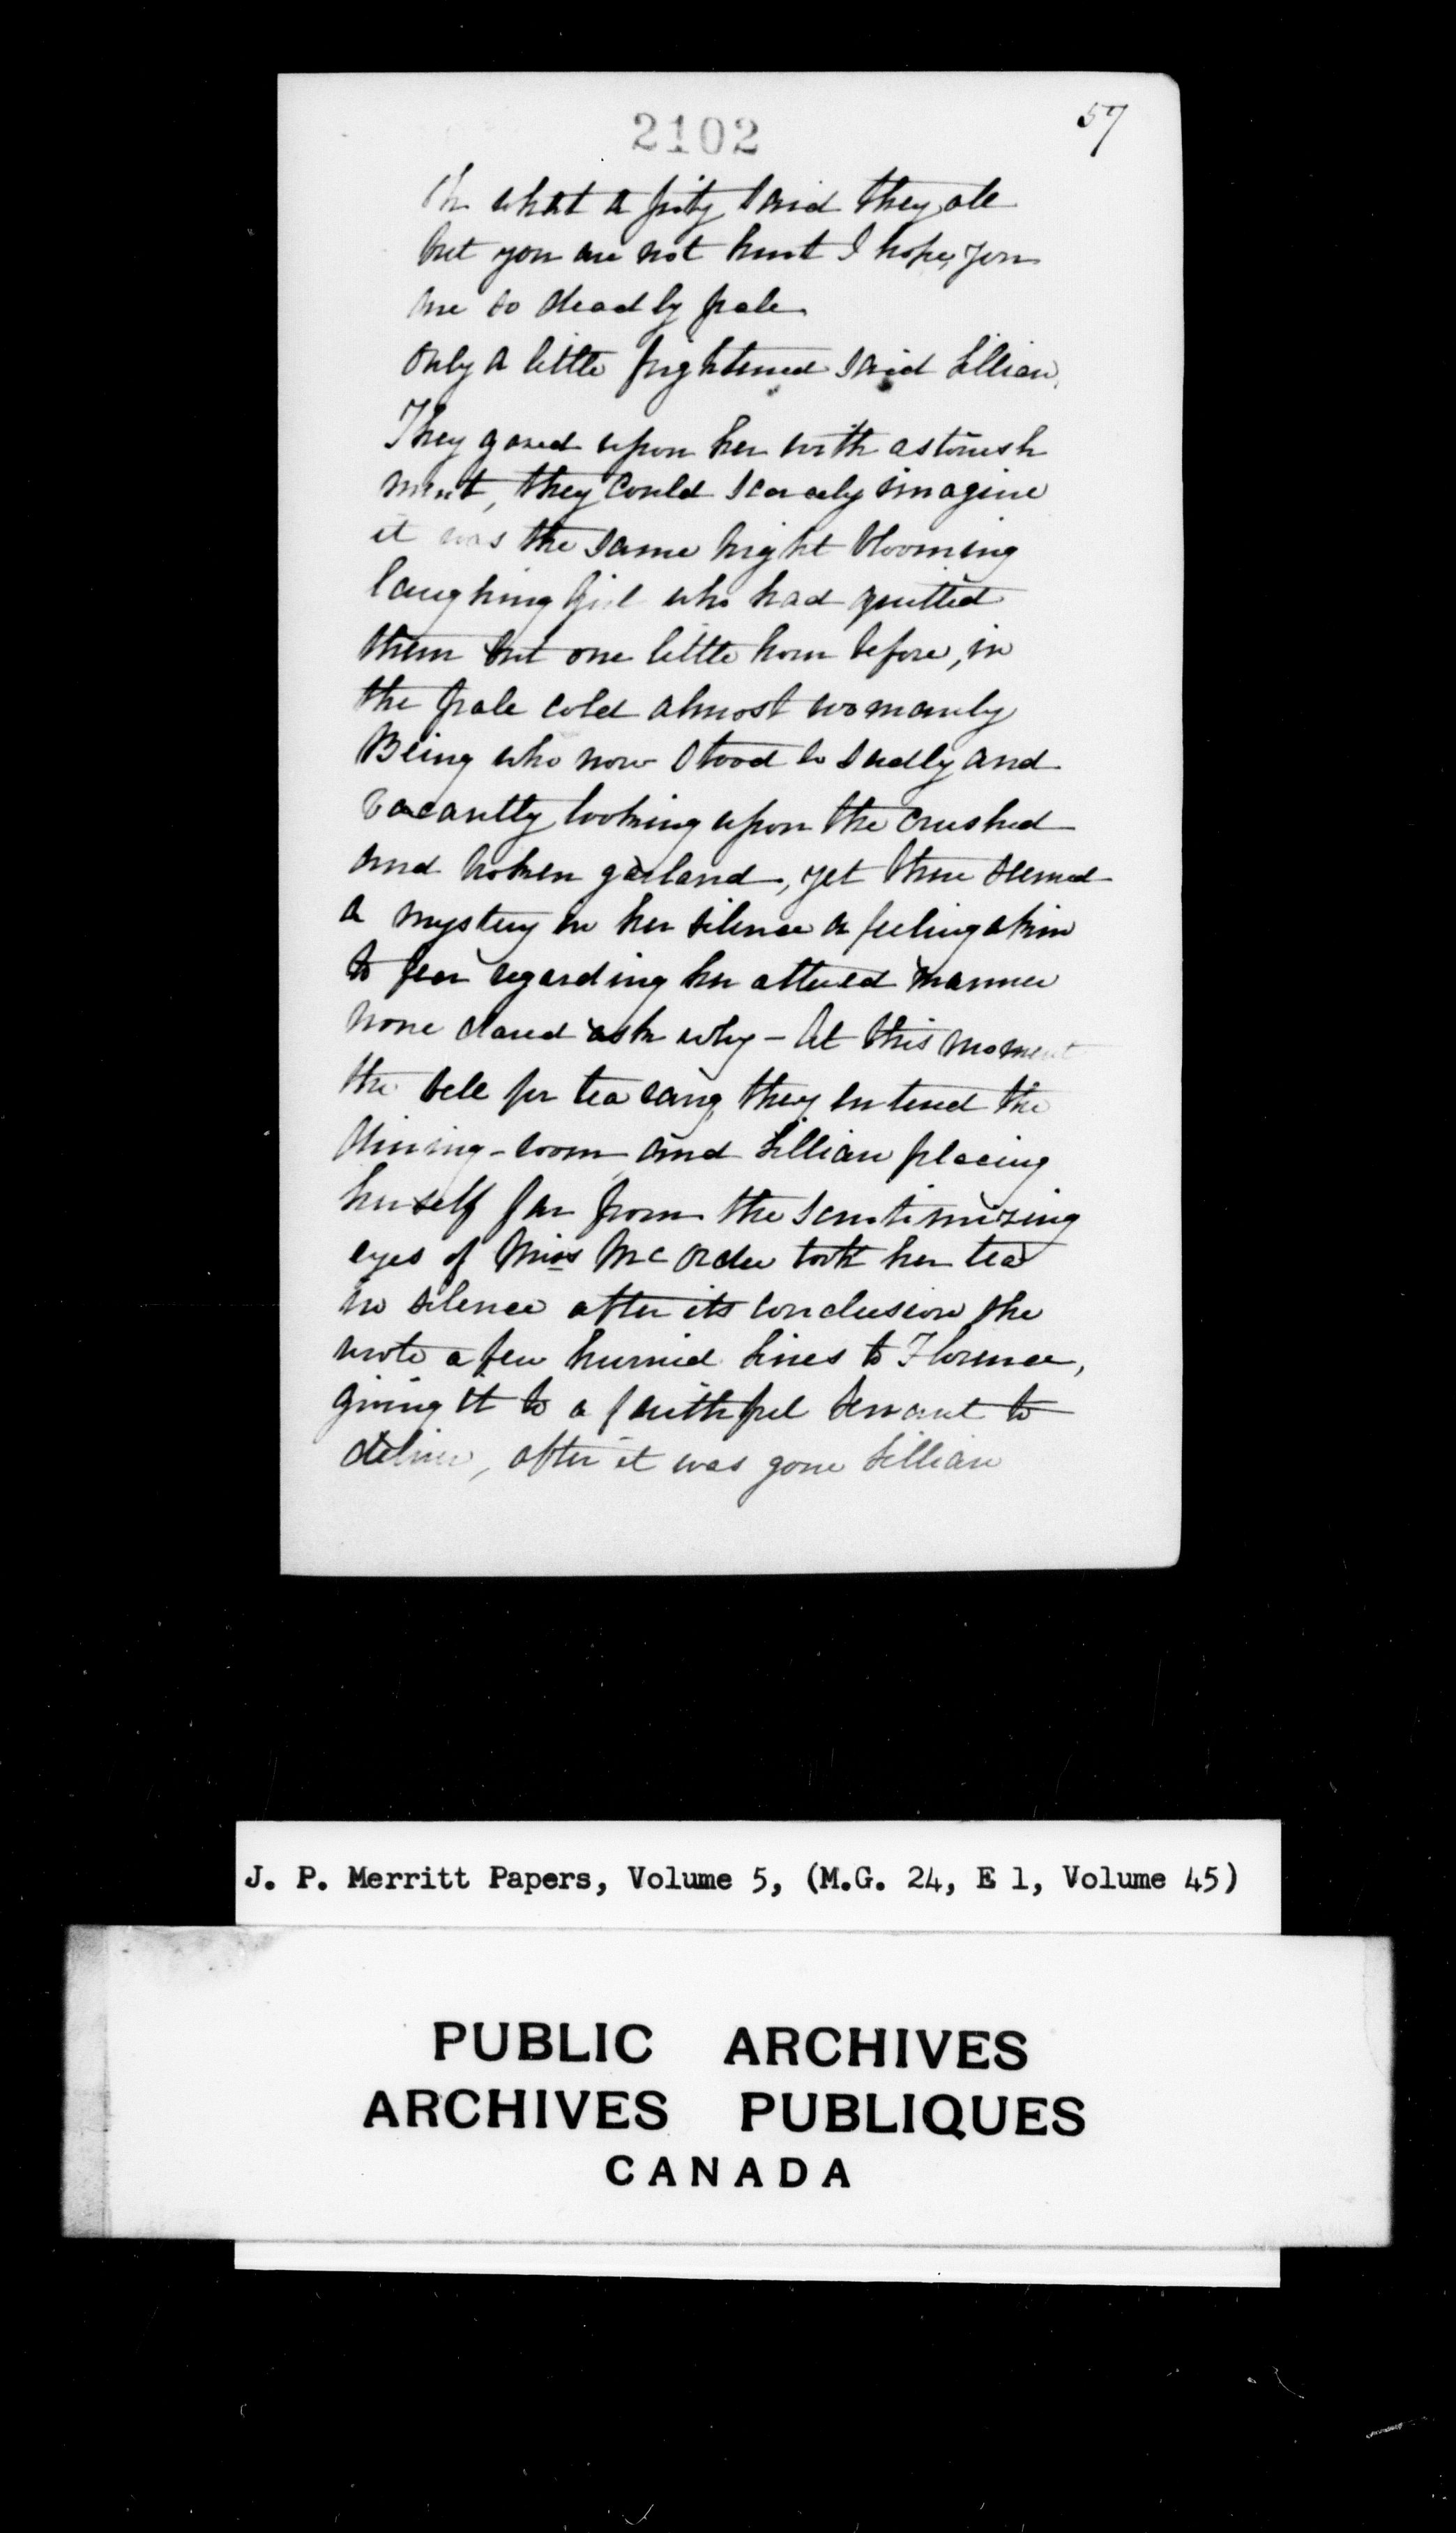 2102
57
Oh what a pity said they all
but you are not hurt I hope, you
are so deadly pale
only a little frightened said Lillian,
They gazed upon her with astonish
ment, they could scarcely imagine
it was the same bright blooming
laughing girl who had quitted
them but one little hour before, in
the pale cold almost womanly
Being who now stood so sadly and
vacantly looking upon the crushed
and broken garland, yet there seemed
a mystery in her silence a feeling akin
to fear regarding her altered manner
none dared ask why - At this moment
the bell for tea rang they entered the
dining-room and Lillian placing
herself far from the scrutinizing
eyes of Miss McOrder took her tea
in silence after its conclusion she
wrote a few hurried lines to Florence,
giving it to a faithful servant to
deliver, after it was gone Lillian
J. P. Merritt Papers, Volume 5, (M.G. 24, E 1, Volume 45)
PUBLIC ARCHIVES
ARCHIVES PUBLIQUES
CANADA